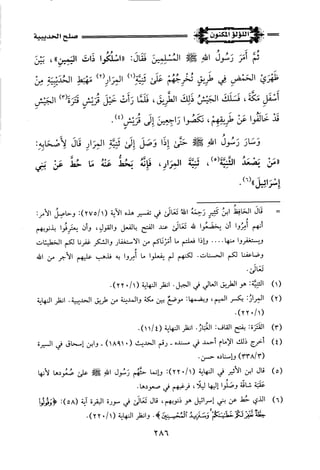 اللؤلؤ المكنون
صلح الحديبية
ثُمَّ أَمَرَ رَسُولُ اللهِ ﷺ المُسْلِمِينَ فَقَالَ: «اسْلُكُوا ذَاتَ اليَمِينِ»، بَيْنَ
ظَهْرَيْ الحَمْضِ فِي طَرِيقٍ تُخْرِجُهُمْ عَلَى ثَنِيَّةِ(١) المِرَارِ(٢) مَهْبِطِ الحُدَيْبِيَةِ مِنْ
أَسْفَلِ مَكَّةَ، فَسَلَكَ الجَيْشُ ذَلِكَ الطَّرِيقَ، فَلَمَّا رَأَتْ خَيْلُ قُرَيْشٍ قَتَرَةَ(٣) الجَيْشِ
قَدْ خَالَفُوا عَنْ طَرِيقِهِمْ، نَكَصُوا رَاجِعِينَ إِلَى قُرَيْشٍ(٤).
وَسَارَ رَسُولُ اللهِ ﷺ حَتَّى إِذَا وَصَلَ إِلَى ثَنِيَّةِ المِرَارِ قَالَ لِأَصْحَابِهِ:
«مَنْ يَصْعَدُ الثَّنِيَّةَ(٥)، ثَنِيَّةَ المِرَارِ، فَإِنَّهُ يُحَطُّ عَنْهُ مَا حُطَّ عَنْ بَنِي
إِسْرَائِيلَ»(٦).
= قال الحافظ ابن كثير رحمه الله تعالى في تفسير هذه الآية (٢٧٥/١): وحاصل الأمر:
أنهم أمروا أن يخضعوا لله تعالى عند الفتح بالفعل والقول، وأن يعترفوا بذنوبهم
ويستغفروا منها....
وتعالى.
(١) الثنية: هو الطريق العالي في الجبل. انظر النهاية (٢٢٠/١).
(٢) المِرار: بكسر الميم، وبعضهم: موضع بين مكة والمدينة من طريق الحديبية. انظر النهاية
(٢٢٠/١).
(٣) القترة: بفتح القاف: الغُبار. انظر النهاية (١١/٤).
(٤) أخرج ذلك الإمام أحمد في مسنده - رقم الحديث (١٨٩١٠) - وابن إسحاق في السيرة
(٣٣٨/٣) وإسناده حسن.
(٥) قال ابن الأثير في النهاية (٢٢٠/١): وإنما حثهم رسول الله ﷺ على صعودها لأنها
عقبة شاقة وصلوا إليها ليلًا، فرغبهم في صعودها.
(٦) الذي حط عن بني إسرائيل هو ذنوبهم، قال تعالى في سورة البقرة آية (٥٨): ﴿وَقُولُوا
حِطَّةٌ نَغْفِرْ لَكُمْ خَطَايَاكُمْ وَسَنَزِيدُ المُحْسِنِينَ﴾. وانظر النهاية (٢٢٠/١).
٢٨٦